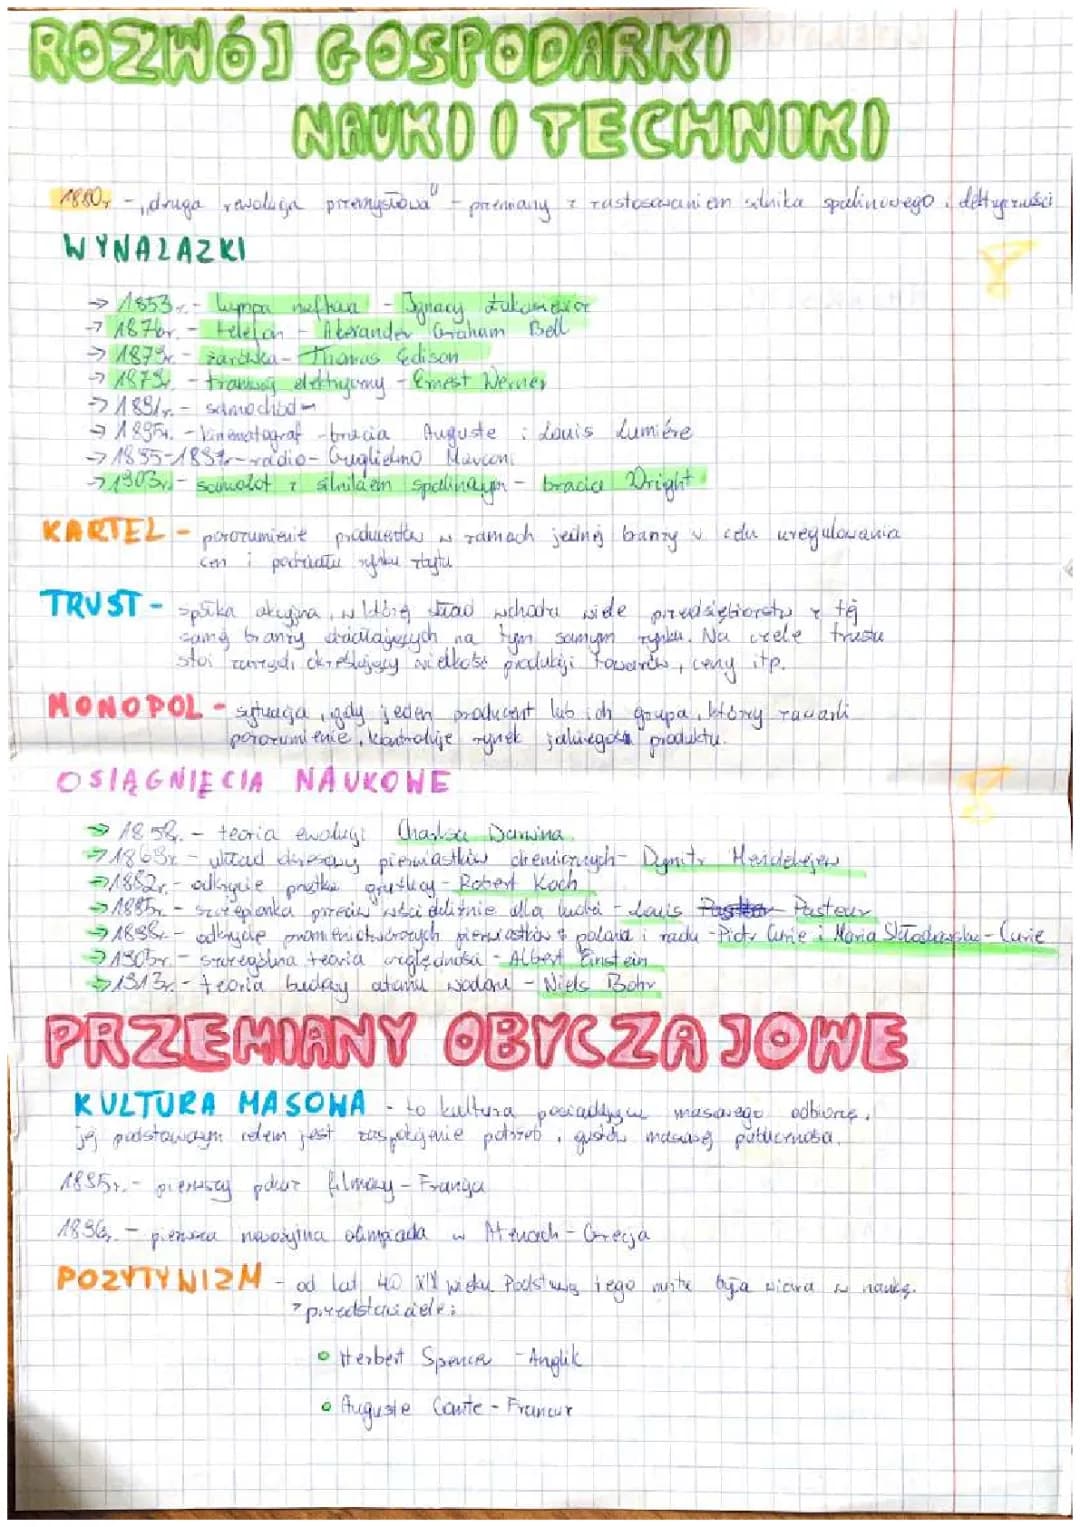 ROZWÓJ GOSPODARKI
NAUKI I TECHNIKI
1880r - „druga rewolucja przemysłowa" - przemiany z zastosowaniem silnika spalinowego i elektryczności
WYNALAZKI
→ 1853r. - lampa naftowa - Ignacy Łukasiewicz
→ 1876r. - telefon - Aleksander Graham Bell
→ 1879r. - żarówka - Thomas Edison
→ 1879r. - tramwaj elektryczny - Ernest Werner
→ 1891r. - samochód -
→ 1895r. - kinematograf - bracia Auguste i Louis Lumiére
→ 1895-1897r - radio - Guglielmo Marconi
→ 1903r. - samolot z silnikiem spalinowym - bracia Wright
KARTEL - porozumienie producentów w ramach jednej branży w celu uregulowania
cen i podziału rynku zbytu
TRUST - spółka akcyjna, w której skład wchodzi wiele przedsiębiorstw z tej
samej branży działających na tym samym rynku. Na czele trustu
stoi zarząd, określający wielkość produkcji towarów, ceny itp.
MONOPOL - sytuacja, gdy jeden producent lub ich grupa, którzy zawarli
porozumienie, kontroluje rynek jakiegoś produktu.
OSIĄGNIĘCIA NAUKOWE
→ 1858r. - teoria ewolucji Charlsa Darwina
→ 1869r - układ okresowy pierwiastków chemicznych - Dymitr Mendelejew
→ 1882r. - odkrycie prątka gruźlicy - Robert Koch
→ 1885r. - szczepionka przeciw wściekliźnie dla ludzi - Louis Pasteur
→ 1898r. - odkrycie promieniotwórczych pierwiastków polonu i radu - Piotr Curie i Maria Skłodowska-Curie
→ 1905r. - szczególna teoria względności - Albert Einstein
→ 1913r. - teoria budowy atomu wodoru - Niels Bohr
PRZEMIANY OBYCZAJOWE
KULTURA MASOWA - to kultura posiadająca masowego odbiorcę,
jej podstawowym celem jest zaspokojenie potrzeb, gustów masowej publiczności.
1895r. - pierwszy pokaz filmowy - Francja
1896r. - pierwsza nowożytna olimpiada w Atenach - Grecja
POZYTYWIZM - od lat 40 XIX wieku. Podstawą tego nurtu była wiara w naukę.
→ przedstawiciele:
• Herbert Spencer - Anglik
• Auguste Comte - Francuz